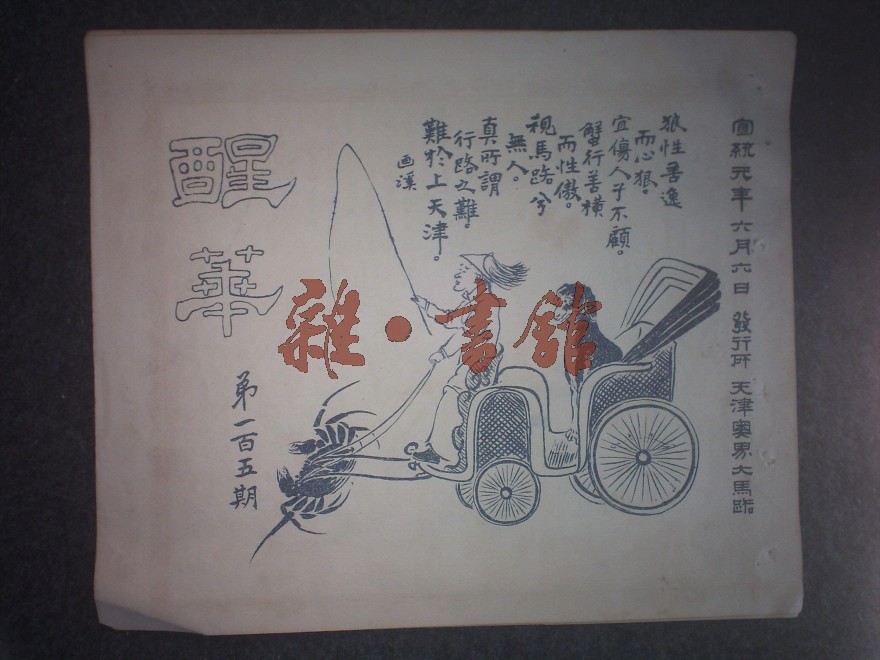 宣統元年六月六日 發行所 天津奧界大馬路
狼性善逸
而心狠。
宜傷人予不顧。
蟹行善橫
而性傲。
視馬路兮
無人。
真所謂
行路之難。
難於上天津。
画溪
醒華
第一百五期
雜·書館